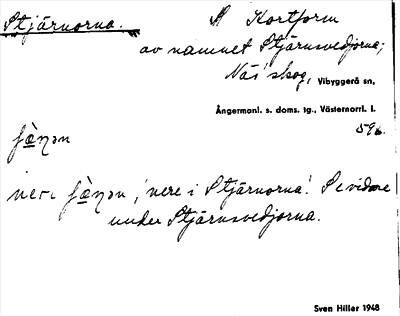 Stjärnorna.
Kortform
av namnet Stjärnsvedjorna;
Näs' skog, Vibyggerå sn,
Ångermanl. s. doms. tg., Västernorrl. l.
596.
nere i Stjärnorna'. Se vidare
under Stjärnsvedjorna.
Sven Hiller 1948